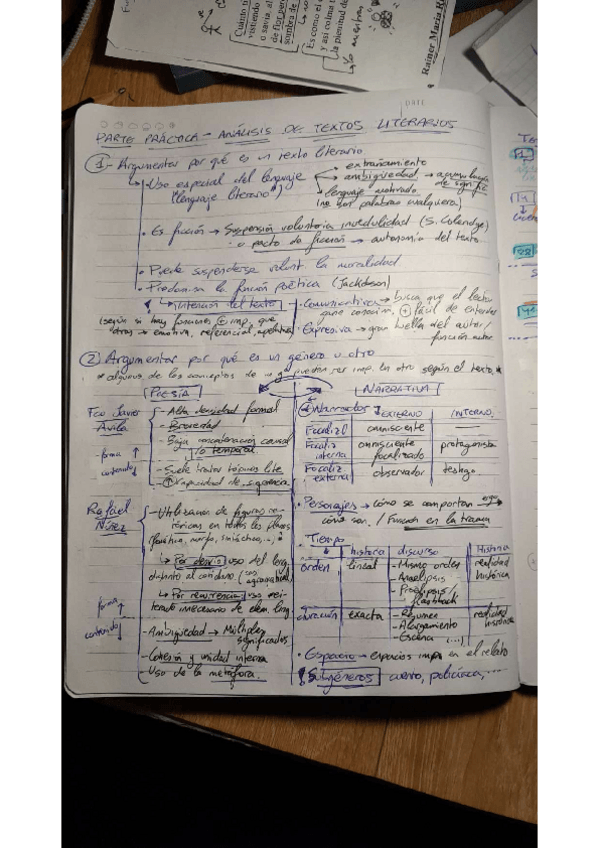 Cuánto ti
vistiendo
o savia al
de flor per
sombra de
Es como el
y así colma t
la plenitud de
Rainer Maria R
PARTE PRÁCTICA - ANÁLISIS DE TEXTOS LITERARIOS
1 - Argumentar por qué es un texto literario
Uso especial del lenguaje
(lenguaje literario)
extrañamiento
ambigüedad → acumulación de signific
lenguaje
(no son palabras cualquiera)
Es ficción → Suspensión voluntaria incredulidad (S. Coleridge)
o pacto de ficción → autonomía del texto
Puede suspenderse volunt. la moralidad
Predomina la función poética (Jackobson)
Intención del texto
(según si hay funciones + imp. que
otras → emotiva, referencial, apelativa)
Comunicativa → busca que el lector
+ fácil de entender
Expresiva → gran huella del autor/
función autor
2 Argumentar por qué es un género u otro
* algunos de los conceptos de un g. pueden ser imp. en otro según el texto *
POESÍA
Fco Javier
Ávila
forma ↑
contenido ↓
- Alta densidad formal
- Brevedad
- Baja concatenación causal
o temporal
- Suele tratar tópicos lite
- ↑ Capacidad de sugerencia
Rafael
Núñez
forma ↑
contenido ↓
- Utilización de figuras re-
tóricas en todos los planos
(fonético, morfo, sintáctico,...)
↳ Por desvío: uso del leng.
distinto al cotidiano
↳ Por recurrencia: uso rei-
terado innecesario de elem. ling.
- Ambigüedad → Múltiples
significados
- Cohesión y unidad interna
- Uso de la metáfora
NARRATIVA
Narrador EXTERNO INTERNO
Focaliz 0 omnisciente
Focaliz interna omnisciente focalizado protagonista
Focaliz externa observador testigo
Personajes → cómo se comportan
cómo son. / Función en la trama
Tiempo
historia discurso Historia
orden lineal - Mismo orden realidad histórica
- Analepsis
- Prolepsis
flashback
duración exacta - Resumen realidad histórica
- Alargamiento
- Escena (...)
Espacio → espacios imp en el relato
Subgéneros cuento, policíaca, ...